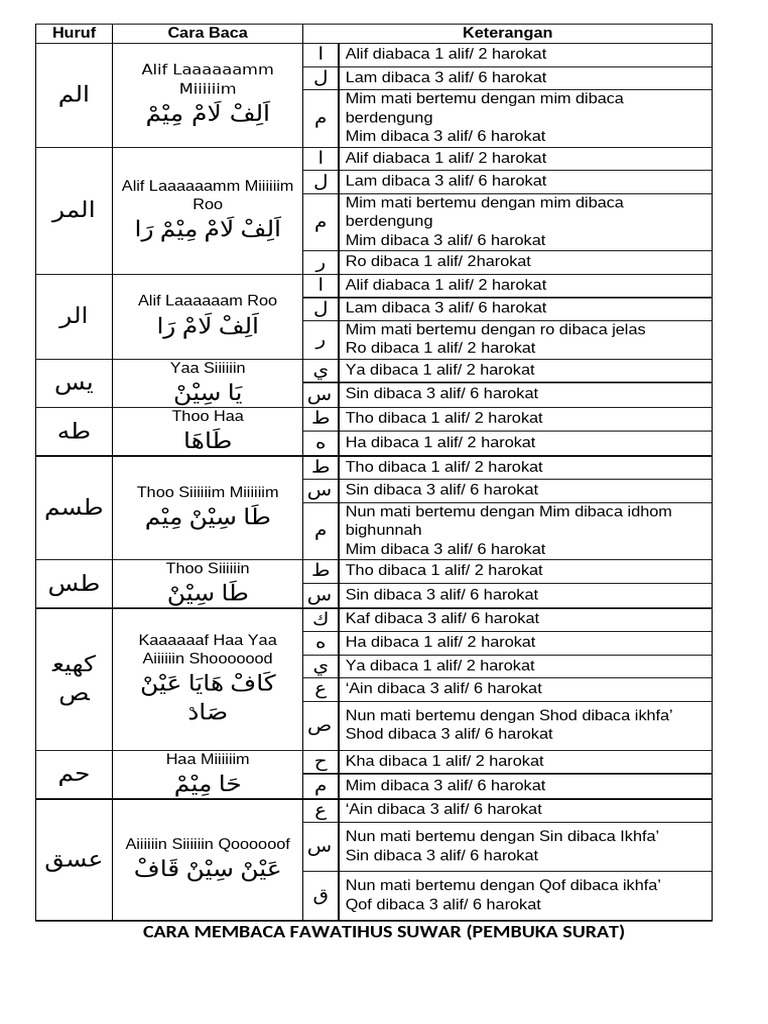 Huruf Cara Baca Keterangan
الم
Alif Laaaaaamm
Miiiiiim
اَلِفْ لَامْ مِيْمْ
ا Alif diabaca 1 alif/ 2 harokat
ل Lam dibaca 3 alif/ 6 harokat
م Mim mati bertemu dengan mim dibaca
berdengung
Mim dibaca 3 alif/ 6 harokat
المر
Alif Laaaaaamm Miiiiiim
Roo
اَلِفْ لَامْ مِيْمْ رَا
ا Alif diabaca 1 alif/ 2 harokat
ل Lam dibaca 3 alif/ 6 harokat
م Mim mati bertemu dengan mim dibaca
berdengung
Mim dibaca 3 alif/ 6 harokat
ر Ro dibaca 1 alif/ 2harokat
الر
Alif Laaaaaam Roo
اَلِفْ لَامْ رَا
ا Alif diabaca 1 alif/ 2 harokat
ل Lam dibaca 3 alif/ 6 harokat
ر Mim mati bertemu dengan ro dibaca jelas
Ro dibaca 1 alif/ 2 harokat
يس
Yaa Siiiiiin
يَا سِيْنْ
ي Ya dibaca 1 alif/ 2 harokat
س Sin dibaca 3 alif/ 6 harokat
طه
Thoo Haa
طَاهَا
ط Tho dibaca 1 alif/ 2 harokat
ه Ha dibaca 1 alif/ 2 harokat
طسم
Thoo Siiiiiim Miiiiiim
طَا سِيْنْ مِيْم
ط Tho dibaca 1 alif/ 2 harokat
س Sin dibaca 3 alif/ 6 harokat
م Nun mati bertemu dengan Mim dibaca idhom
bighunnah
Mim dibaca 3 alif/ 6 harokat
طس
Thoo Siiiiiin
طَا سِيْنْ
ط Tho dibaca 1 alif/ 2 harokat
س Sin dibaca 3 alif/ 6 harokat
كهيع
ص
Kaaaaaaf Haa Yaa
Aiiiiiin Shooooood
كَافْ هَايَا عَيْنْ
صَادْ
ك Kaf dibaca 3 alif/ 6 harokat
ه Ha dibaca 1 alif/ 2 harokat
ي Ya dibaca 1 alif/ 2 harokat
ع ‘Ain dibaca 3 alif/ 6 harokat
ص Nun mati bertemu dengan Shod dibaca ikhfa’
Shod dibaca 3 alif/ 6 harokat
حم
Haa Miiiiiim
حَا مِيْمْ
ح Kha dibaca 1 alif/ 2 harokat
م Mim dibaca 3 alif/ 6 harokat
عسق
Aiiiiiin Siiiiiin Qoooooof
عَيْنْ سِيْنْ قَافْ
ع ‘Ain dibaca 3 alif/ 6 harokat
س Nun mati bertemu dengan Sin dibaca Ikhfa’
Sin dibaca 3 alif/ 6 harokat
ق Nun mati bertemu dengan Qof dibaca ikhfa’
Qof dibaca 3 alif/ 6 harokat
CARA MEMBACA FAWATIHUS SUWAR (PEMBUKA SURAT)